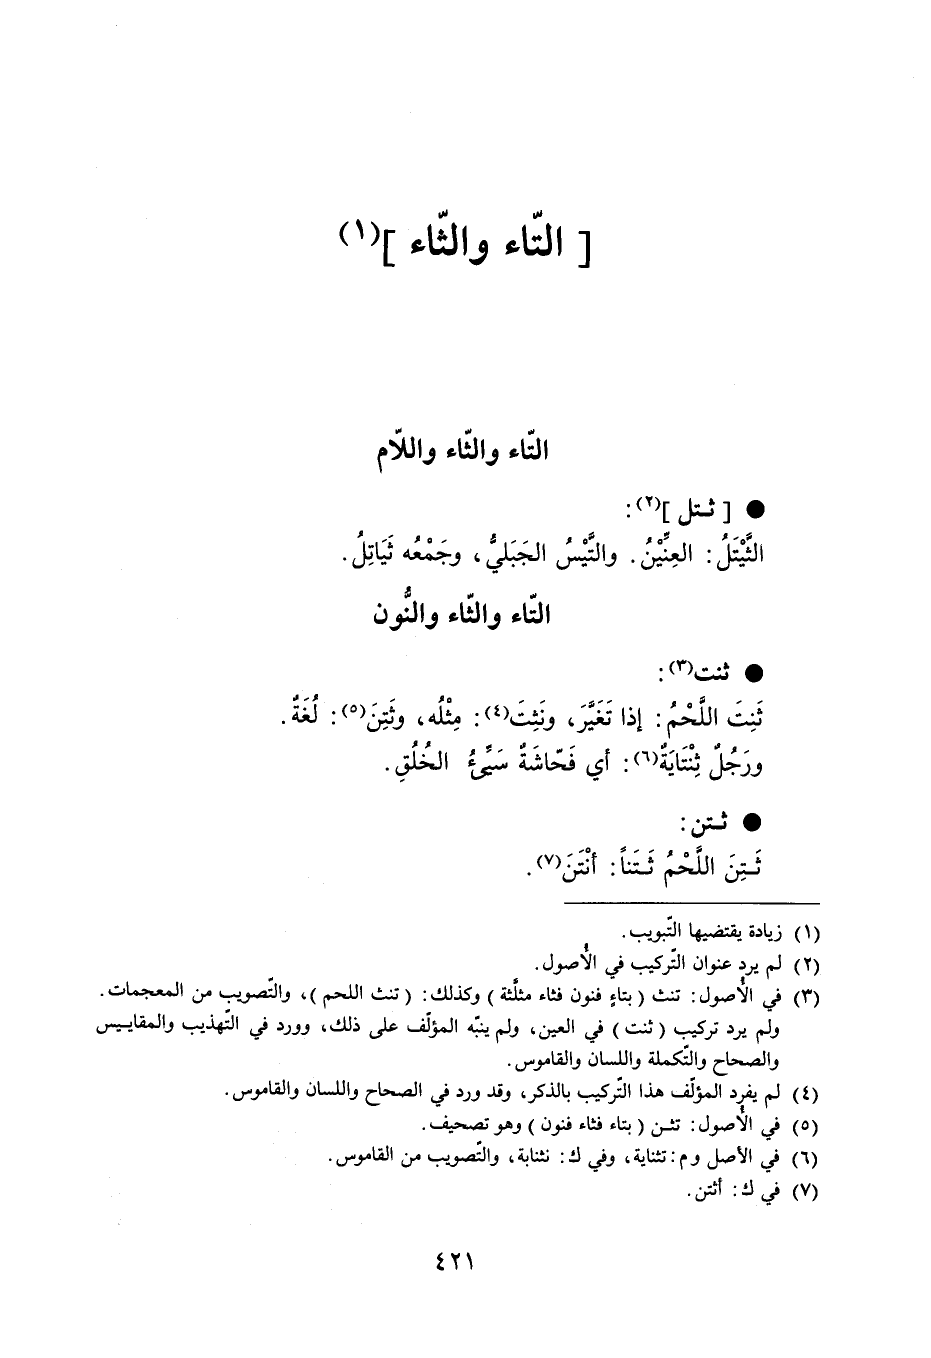 [ التّاء والثّاء ](١)
التّاء والثّاء واللّام
● [ ثـتل ](٢):
الثَّيْتَلُ: العِنِّيْنُ. والتَّيْسُ الجَبَليُّ، وجَمْعُه ثَيَاتِلُ.
التّاء والثّاء والنُّون
● ثنت(٣):
ثَنِتَ اللَّحْمُ: إذا تَغَيَّرَ، ونَثِتَ(٤): مِثْلُه، وثَتِنَ(٥): لُغَةٌ.
ورَجُلٌ ثِنْتَايَةٌ(٦): أي فَحّاشَةٌ سَيِّئُ الخُلُقِ.
● ثـتن:
ثَـتِنَ اللَّحْمُ ثَـتَناً: أنْتَنَ(٧).
(١) زيادة يقتضيها التّبويب.
(٢) لم يرد عنوان التّركيب في الأُصول.
(٣) في الأُصول: تنث ( بتاءٍ فنون فثاء مثلَّثة ) وكذلك: ( تنث اللحم )، والتّصويب من المعجمات.
ولم يرد تركيب ( ثنت ) في العين، ولم ينبّه المؤلّف على ذلك، وورد في التّهذيب والمقاييس
والصحاح والتّكملة واللسان والقاموس.
(٤) لم يفرد المؤلّف هذا التّركيب بالذكر، وقد ورد في الصحاح واللسان والقاموس.
(٥) في الأُصول: تثـن ( بتاء فثاء فنون ) وهو تصحيف.
(٦) في الأصل و م: تثناية، وفي ك: نثتابة، والتّصويب من القاموس.
(٧) في ك: أثتن.
٤٢١